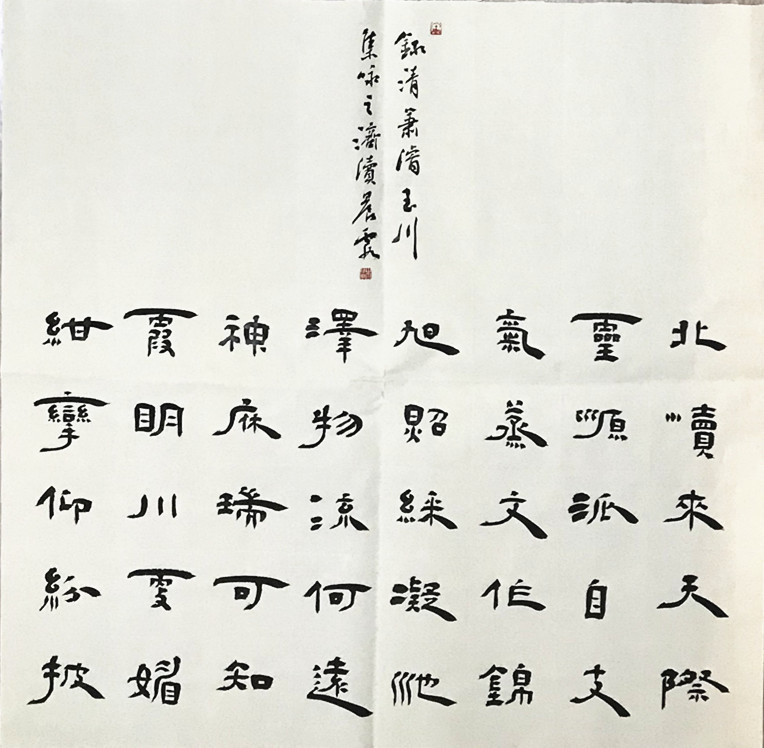 北瀆來天際
靈源派自支
氣蒸文作錦
旭照綵凝池
澤物流何遠
神庥瑞可知
霞明川更媚
紺攣仰紛披
錄清蕭濬玉川
集咏之濟瀆晨霞